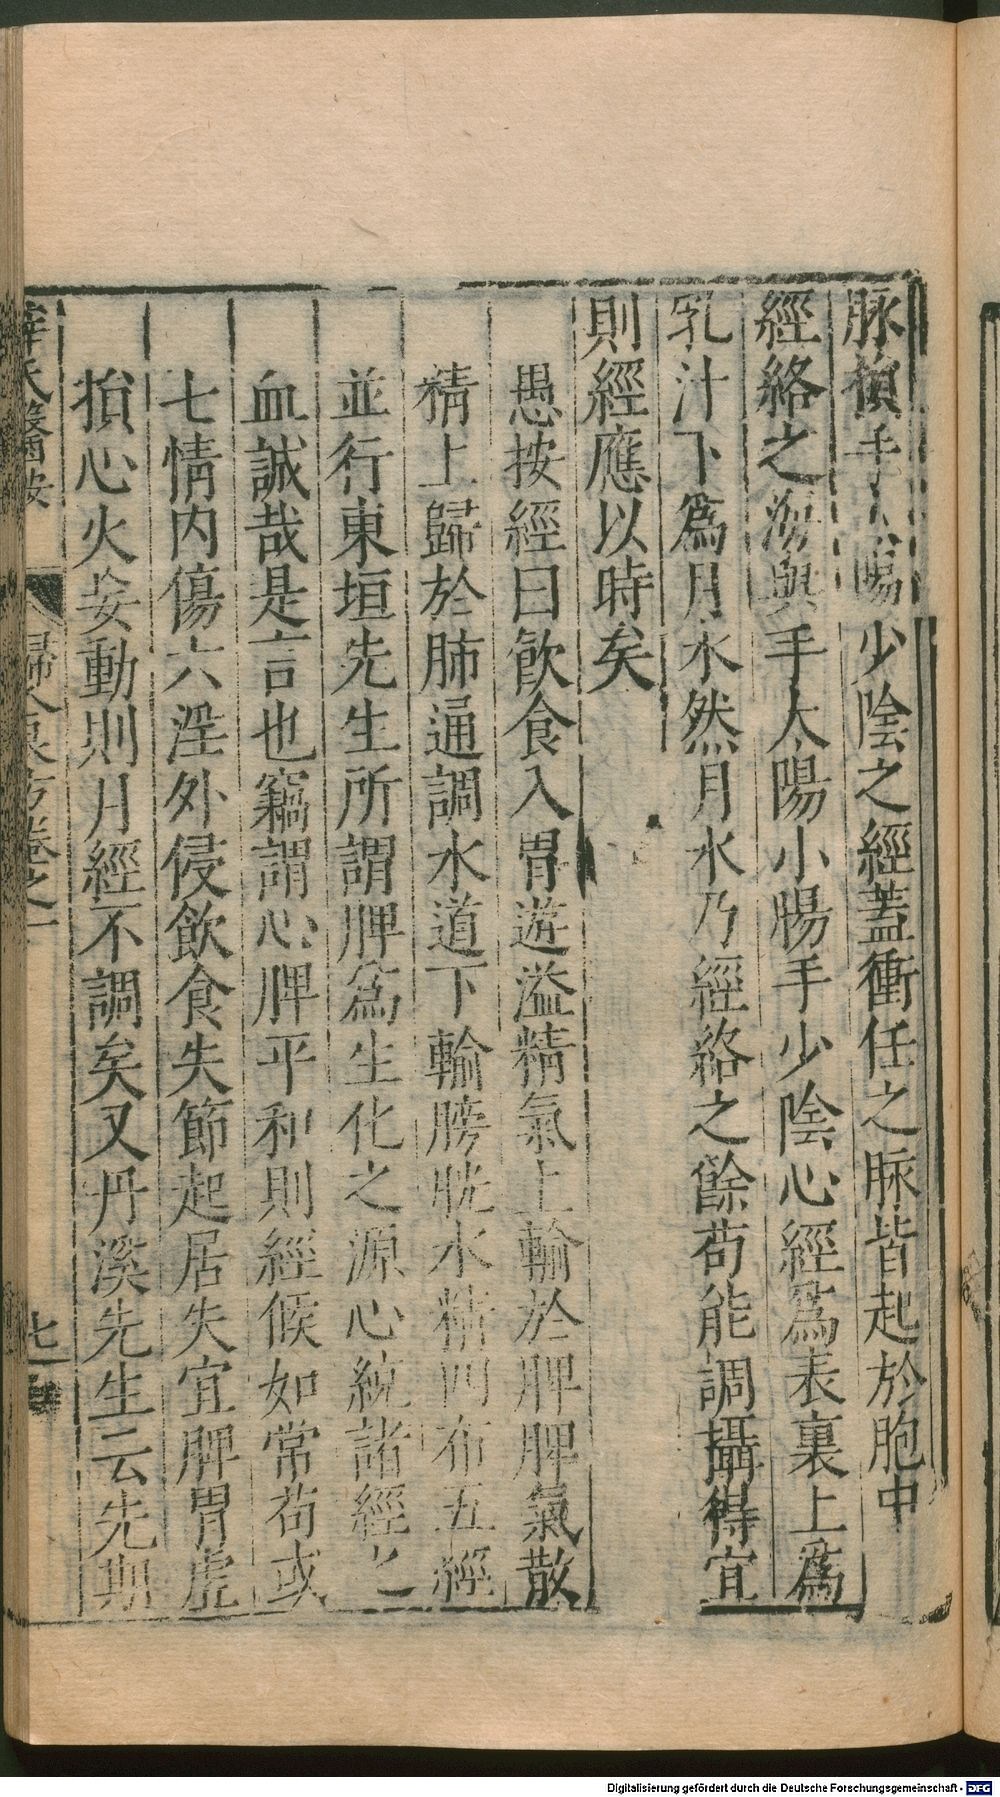 脉損手太陽少陰之經蓋衝任之脉皆起於胞中
經絡之海與手太陽小腸手少陰心經爲表裏上爲
乳汁下爲月水然月水乃經絡之餘苟能調攝得宜
則經應以時矣
愚按經曰飲食入胃遊溢精氣上輸於脾脾氣散
精上歸於肺通調水道下輸膀胱水精四布五經
並行東垣先生所謂脾爲生化之源心統諸經之
血誠哉是言也竊謂心脾平和則經候如常苟或
七情内傷六淫外侵飲食失節起居失宜脾胃虛
損心火妄動則月經不調矣又丹溪先生云先期
薛氏醫按 婦人良方卷之一 七
Digitalisierung gefördert durch die Deutsche Forschungsgemeinschaft - DFG